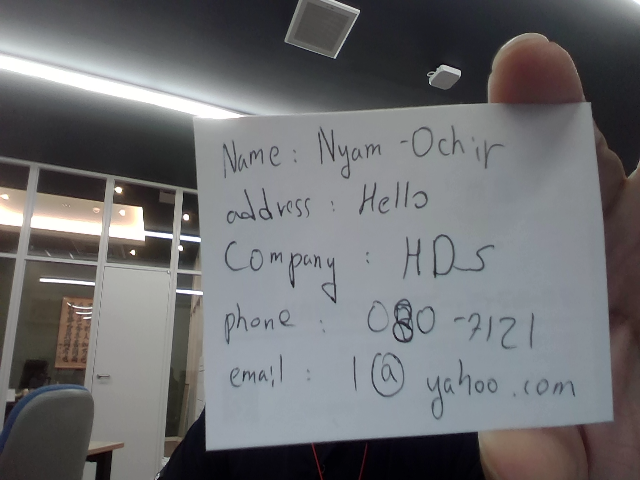 Name: Nyam-Ochir
address: Hello
Company: HDS
phone: 080-7121
email: 1@yahoo.com